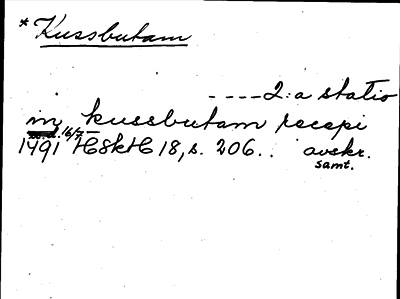 * Kussbutam
----2:a statio
in kussbutam recepi
1491 16/7 HSkH 18, s. 206.. avskr.
samt.